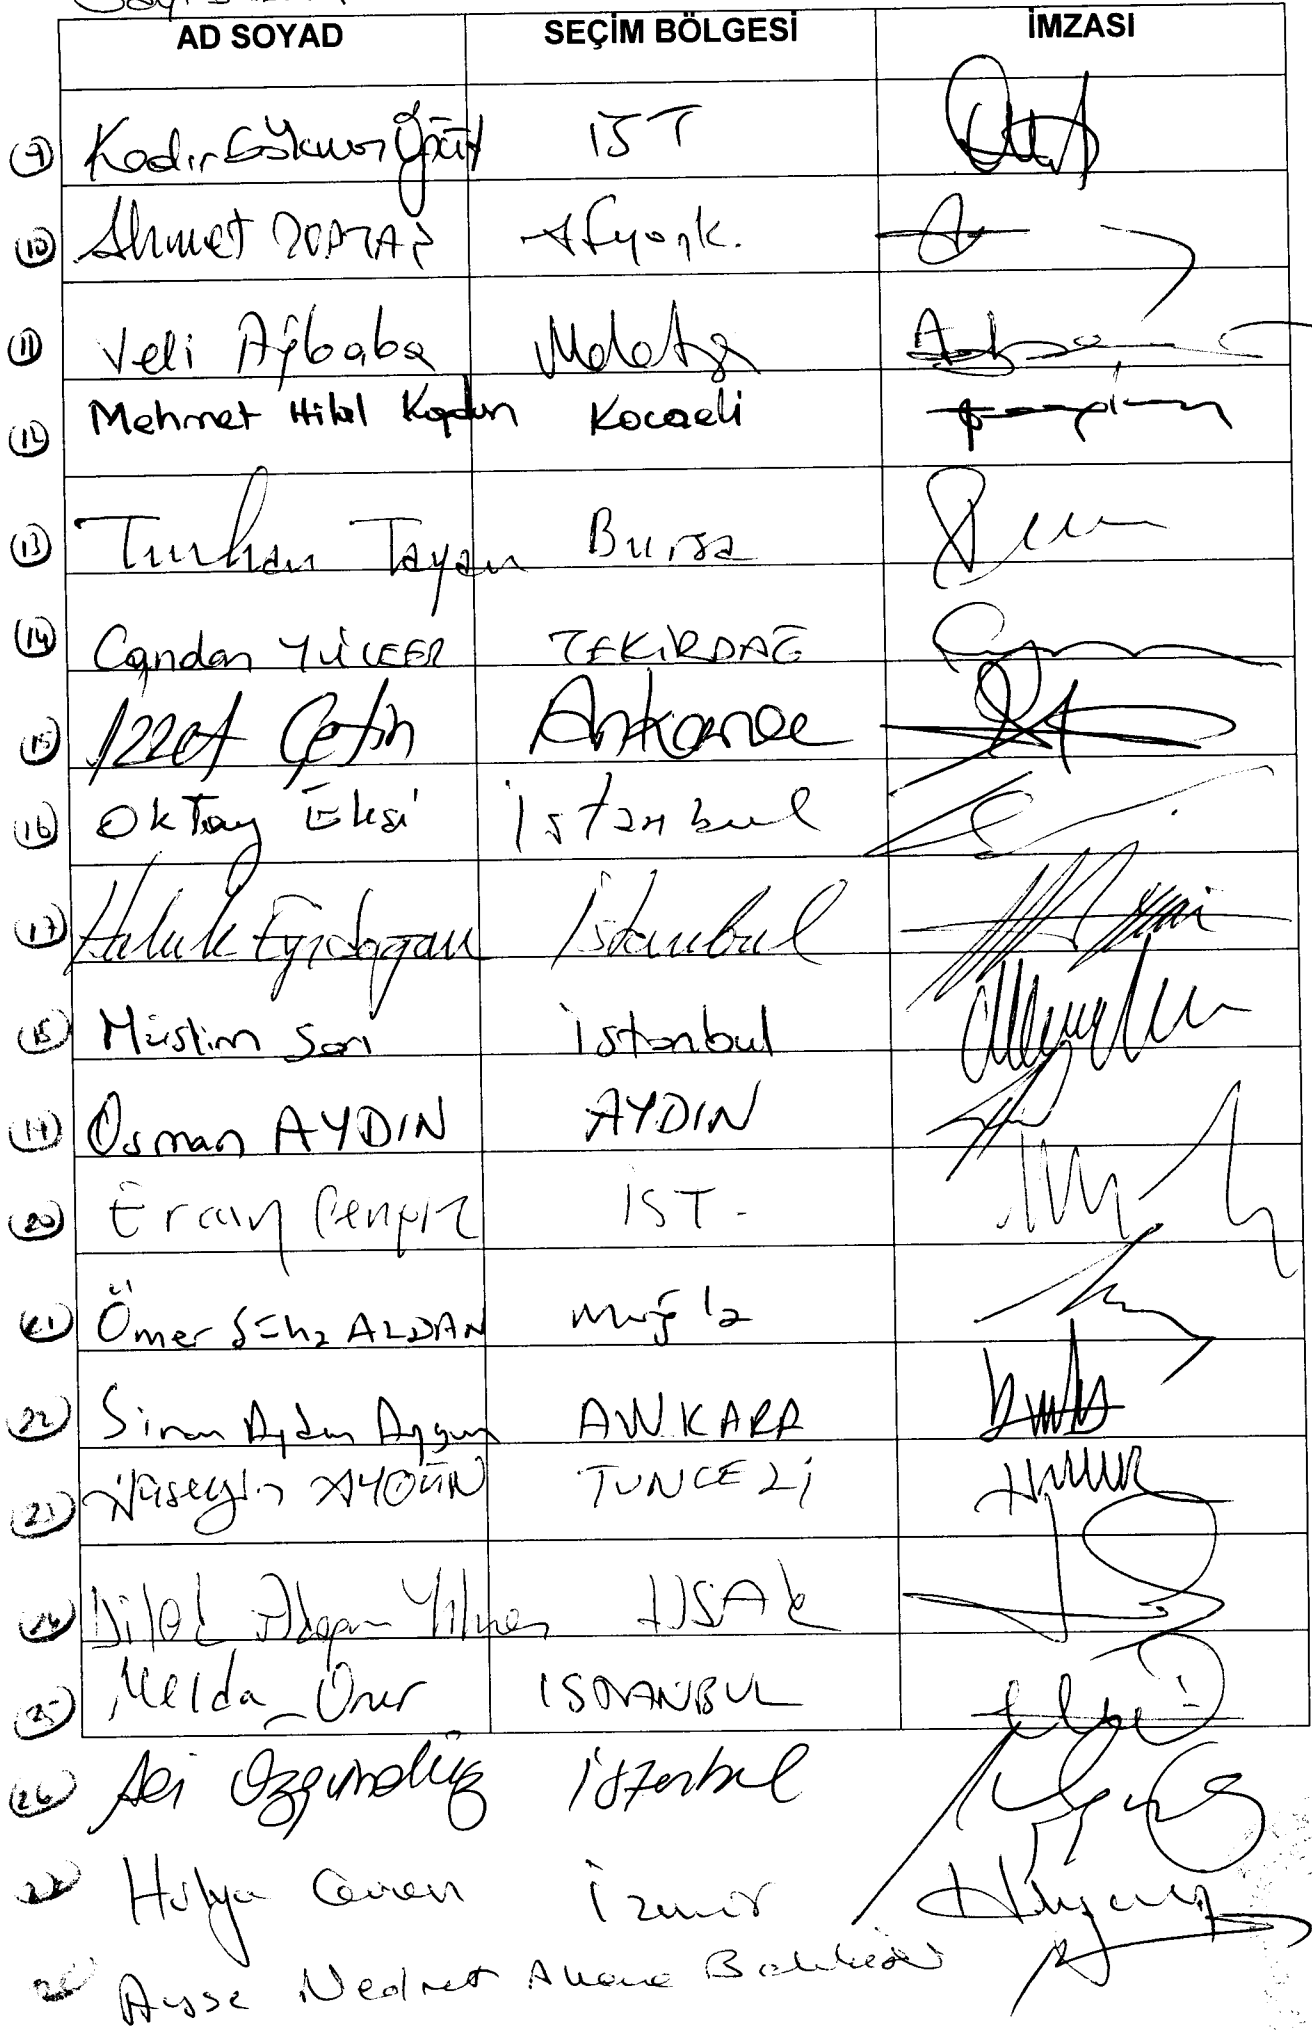 AD SOYAD SEÇİM BÖLGESİ İMZASI
9 Kadir Gökmen Öğüt İST
10 Ahmet TOPTAŞ Afyonk.
11 Veli Ağbaba Malatya
12 Mehmet Hilal Kaplan Kocaeli
13 Turhan Tayan Bursa
14 Candan YÜCEER TEKİRDAĞ
15 İzzet Çetin Ankara
16 Oktay Ekşi İstanbul
17 Haluk Eyidoğan İstanbul
18 Müslim Sarı İstanbul
19 Osman AYDIN AYDIN
20 Ercan Cengiz İST.
21 Ömer Süha ALDAN Muğla
22 Sinan Aydın Aygün ANKARA
23 Hüseyin AYGÜN TUNCELİ
24 Dilek Akagün Yılmaz UŞAK
25 Melda Onur İSTANBUL
26 Ali Özgündüz İstanbul
27 Hülya Güven İzmir
28 Ayşe Nedret Akova Balıkesir